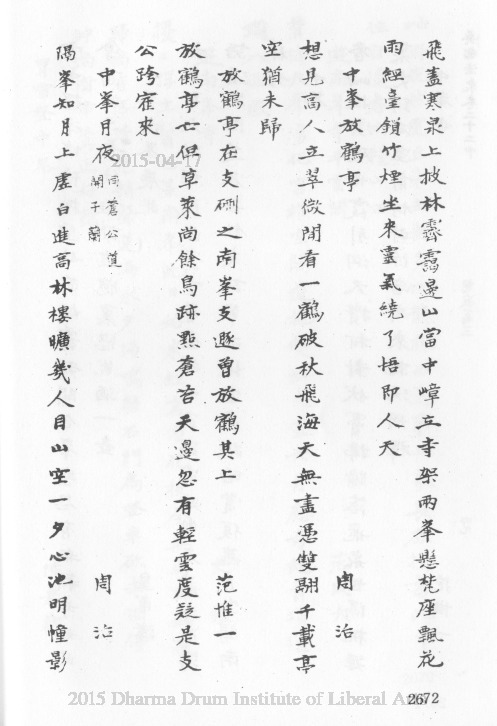 飛蓋寒泉上披林霽靄邊山當中嶂立寺架兩峯懸梵座飄花
雨經臺鎖竹煙坐來靈氣繞了悟即人天
中峯放鶴亭 周治
想見高人立翠微閒看一鶴破秋飛海天無盡憑雙翮千載亭
空猶未歸
放鶴亭在支硎之南峯支遯曾放鶴其上 范惟一
放鶴亭亡但草萊尚餘鳥跡點蒼苔天邊忽有輕雲度疑是支
公跨寉來
中峯月夜 同蒼公 子蘭 周治
隔峯知月上虛白進高林樓曠幾人目山空一夕心池明幢影
2015-04-17
2015 Dharma Drum Institute of Liberal Ar
2672